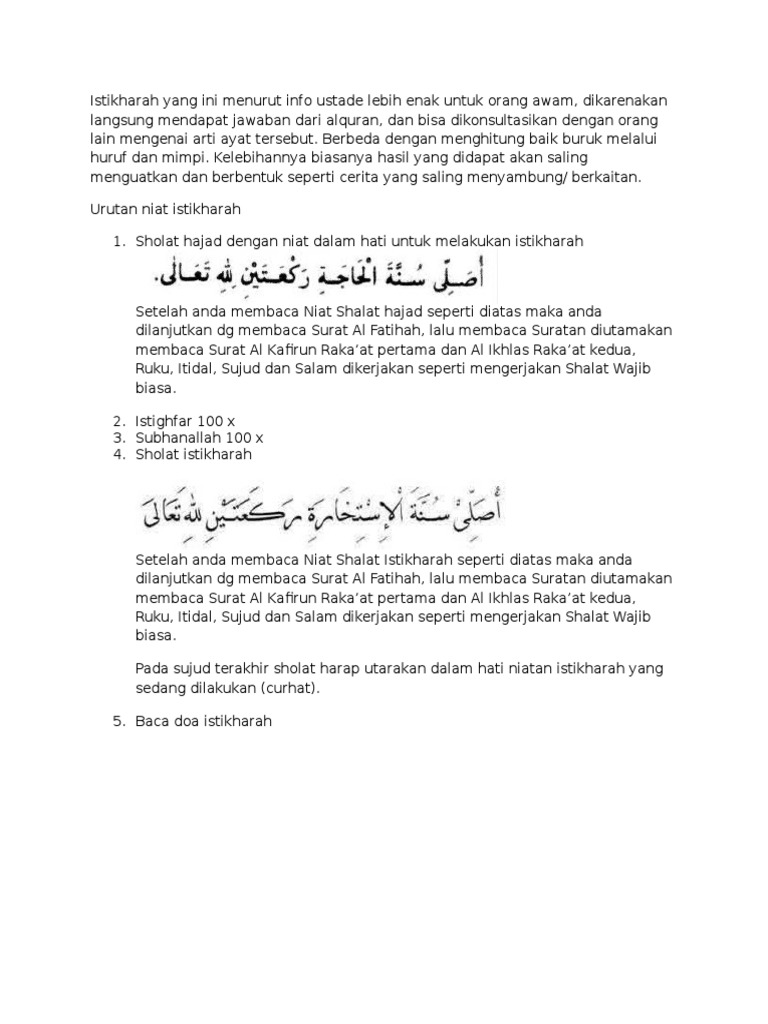 Istikharah yang ini menurut info ustade lebih enak untuk orang awam, dikarenakan
langsung mendapat jawaban dari alquran, dan bisa dikonsultasikan dengan orang
lain mengenai arti ayat tersebut. Berbeda dengan menghitung baik buruk melalui
huruf dan mimpi. Kelebihannya biasanya hasil yang didapat akan saling
menguatkan dan berbentuk seperti cerita yang saling menyambung/ berkaitan.
Urutan niat istikharah
1. Sholat hajad dengan niat dalam hati untuk melakukan istikharah
أُصَلِّى سُنَّةَ الْحَاجَةِ رَكْعَتَيْنِ لِلهِ تَعَالٰى.
Setelah anda membaca Niat Shalat hajad seperti diatas maka anda
dilanjutkan dg membaca Surat Al Fatihah, lalu membaca Suratan diutamakan
membaca Surat Al Kafirun Raka’at pertama dan Al Ikhlas Raka’at kedua,
Ruku, Itidal, Sujud dan Salam dikerjakan seperti mengerjakan Shalat Wajib
biasa.
2. Istighfar 100 x
3. Subhanallah 100 x
4. Sholat istikharah
أُصَلِّىْ سُنَّةَ الْاِسْتِخَارَةِ رَكْعَتَيْنِ لِلهِ تَعَالىَ
Setelah anda membaca Niat Shalat Istikharah seperti diatas maka anda
dilanjutkan dg membaca Surat Al Fatihah, lalu membaca Suratan diutamakan
membaca Surat Al Kafirun Raka’at pertama dan Al Ikhlas Raka’at kedua,
Ruku, Itidal, Sujud dan Salam dikerjakan seperti mengerjakan Shalat Wajib
biasa.
Pada sujud terakhir sholat harap utarakan dalam hati niatan istikharah yang
sedang dilakukan (curhat).
5. Baca doa istikharah